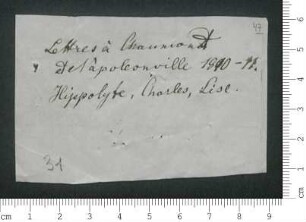 47
Lettres à Chaumond
De Napoleonville 1810-11.
Hippolyte, Charles, Lise.
31
cm 1 2 3 4 5 6 7 8 9
1 2 3 4 5 6